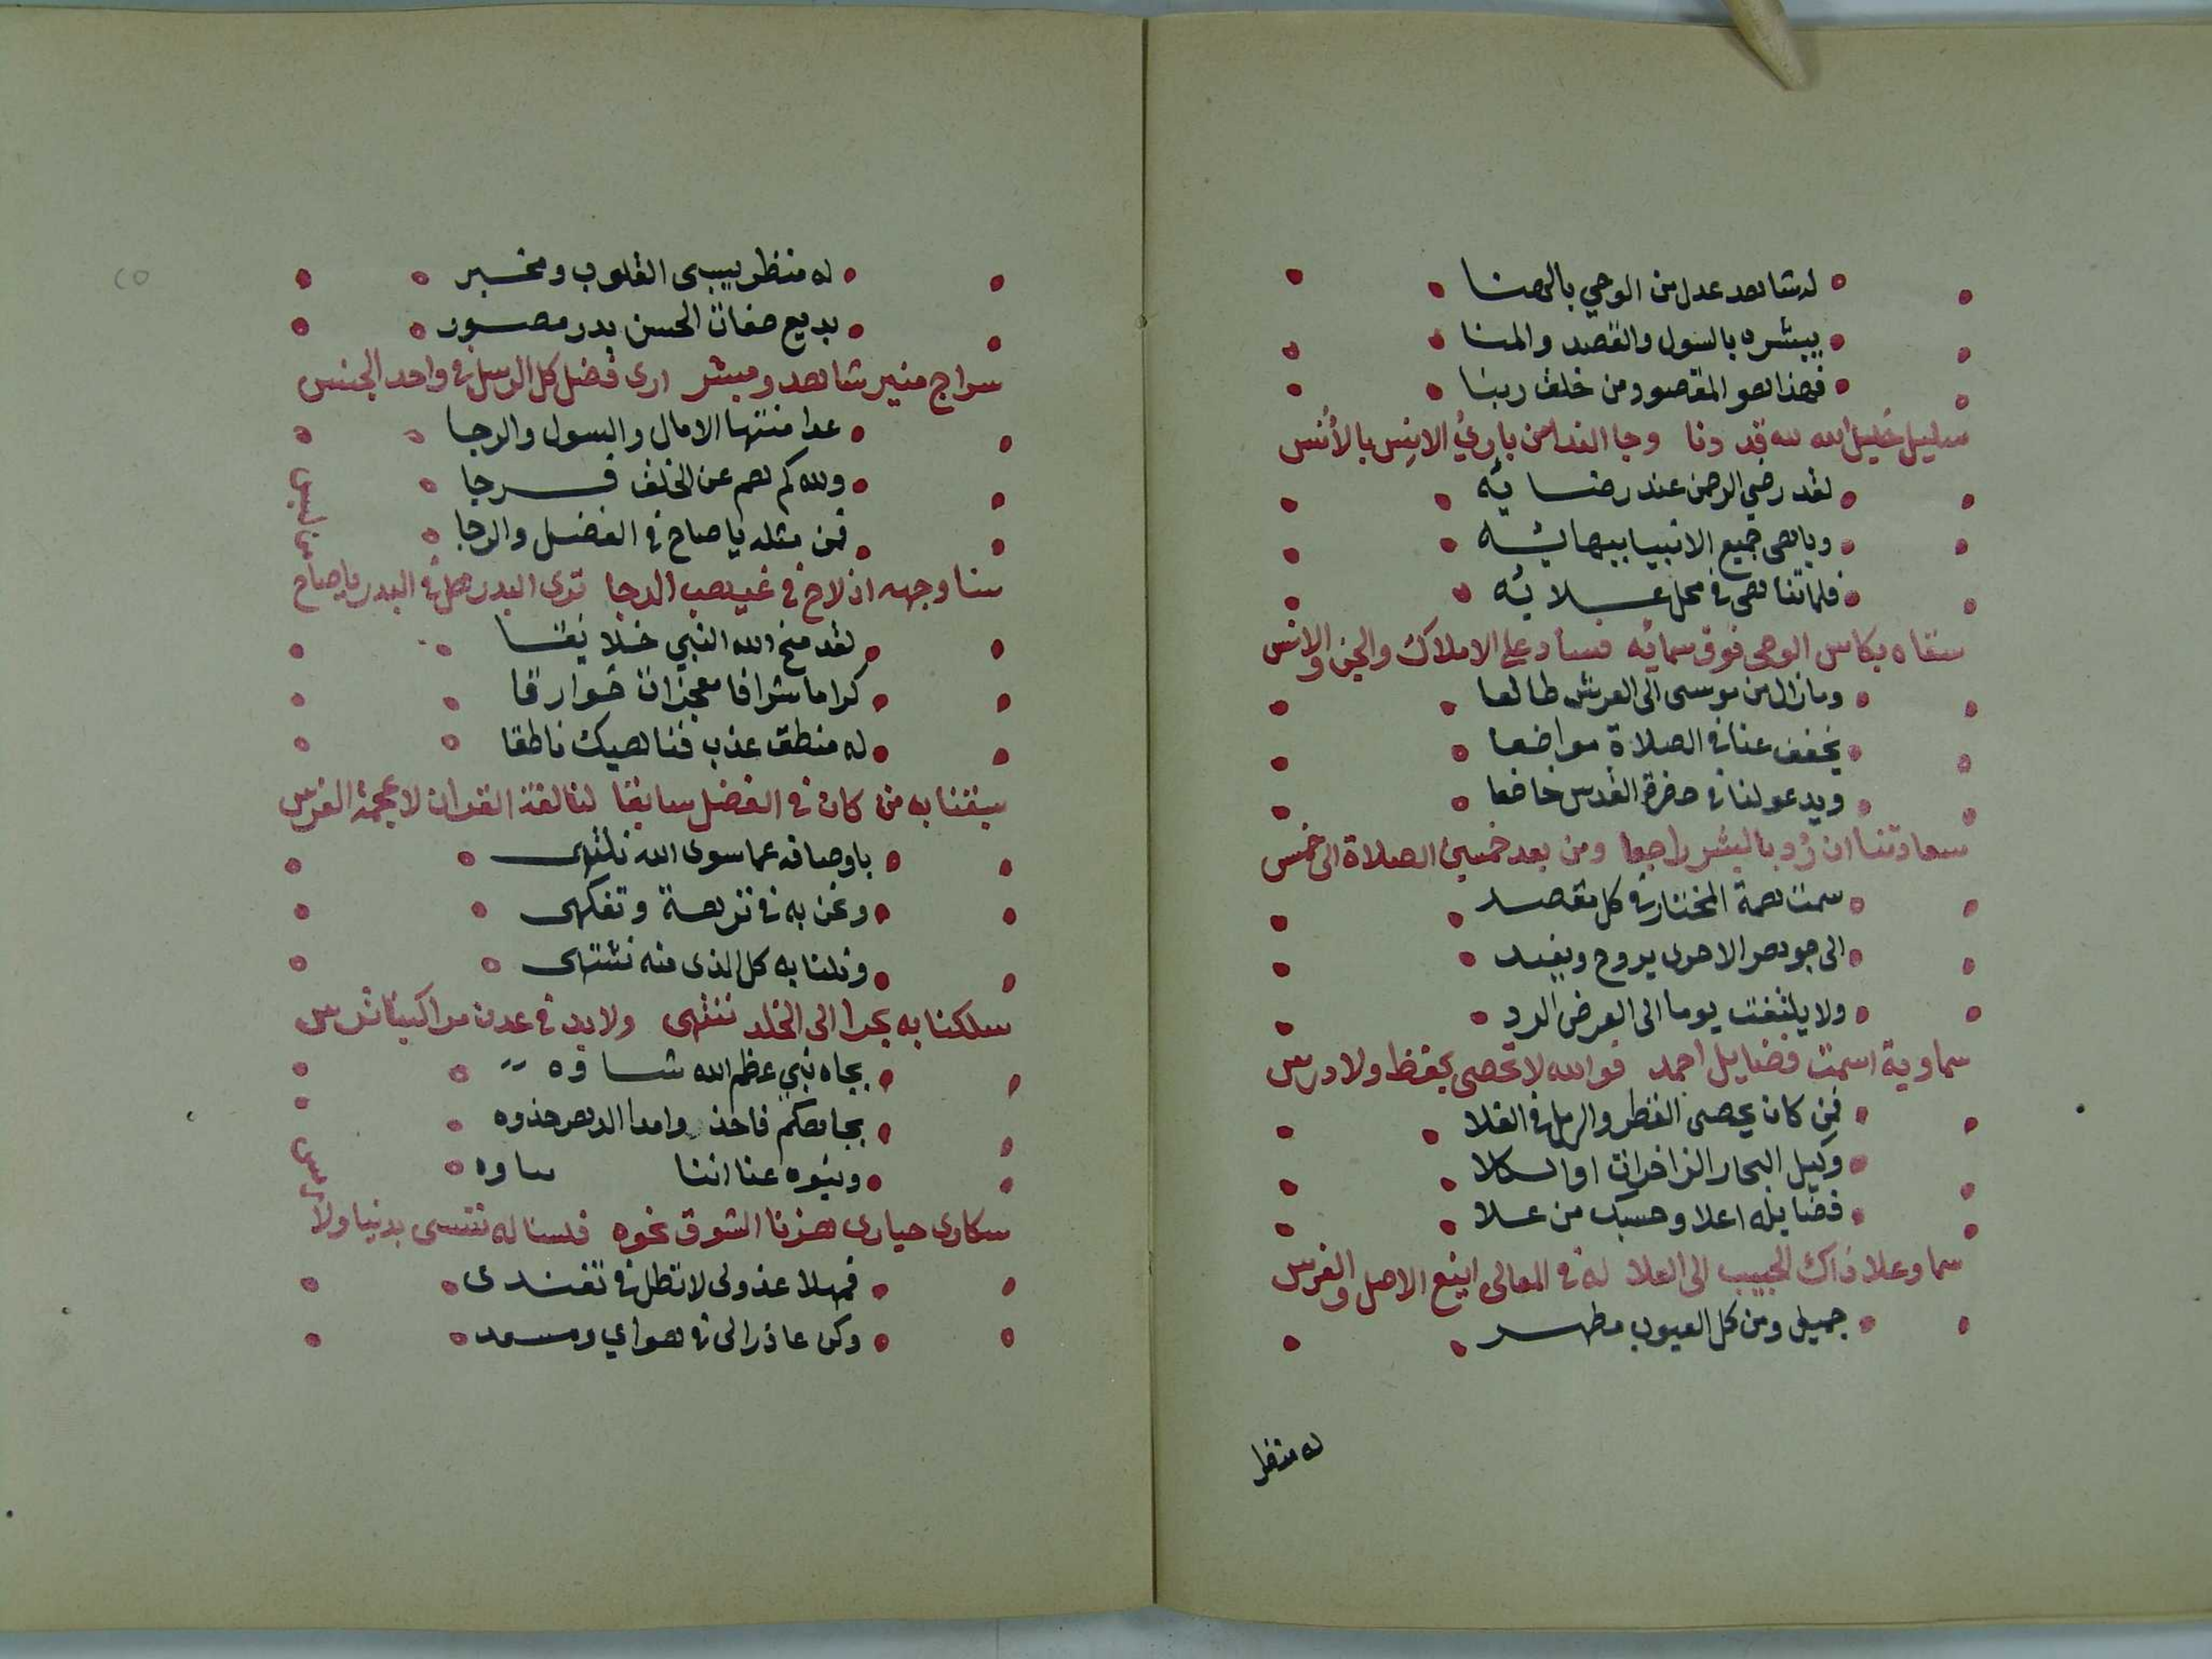 له شاهد عدل من الوحي بالهنا
يبشره بالسول والقصد والمنا
فهذا هو المقصود من خلف ربنا
سليل خليل الله لله قد دنا وجا الندا من باري الانس بالأنس
لقد رضي الرحمن عند رضايه
وباهى جميع الانبيا ببهايه
فلما تناهى في محل علايه
سقاه بكاس الوحى فوق سمائه فساد على الاملاك والجن والانس
ومازال من موسى الى العرش طالعا
يخفف عنا في الصلاة مواضعا
ويدعو لنا في حضرة القدس خاضعا
سعادتنا ان رُد بالبشر راجعا ومن بعد خمسين الصلاة الى خمس
سمت همة المختار في كل مقصد
الى جوهر الاحرى يروح ويغتد
ولا يلتفت يوما الى العرض الرد
سماوية اسمت فضايل احمد فوالله لا تحصى بحفظ ولا درس
فمن كان يحصى القطر والرمل في الفلا
وكيل البحار الزاخرات او الكلا
فضايله اعلا وحسبك من علا
سما وعلا ذاك الحبيب الى العلا له في المعالى اينع الاصل والغرس
جميل ومن كل العيوب مطهر
له منظر
له منظر يسبى القلوب ومخبر
بديع صفات الحسن بدر مصور
سراج منير شاهد ومبشر ارى فضل كل الرسل في واحد الجنس
غدا منتها الامال والسول والرجا
ولله كم هم عن الخلف فرجا
فمن مثله ياصاح في الفضل والرجا
سنا وجهه اذ لاح في غيهب الدجا ترى البدر هل في البدر ياصاح من لبس
لقد منح الله النبي خلايقا
كراما شرافا معجزات خوارقا
له منطق عذب فناهيك ناطقا
سبقنا به من كان في الفضل سابقا لنا لغة القران لا عجمة الفرس
باوصافه عما سوى الله نلتهى
ونحن به في نزهة وتفكهى
ونلنا به كل الذى منه نشتهى
سلكنا به بحرا الى الخلد ننتهى ولا بد في عدن مراكبنا ترس
بجاه نبي عظم الله شاوه
بجاهكم فاحذ وامدا الدهر حذوه
وينوه عنا اننا
سكارى حيارى هزنا الشوق نحوه فلسنا له ننسى بدنيا ولا رمس
فمهلا عذولى لا تطل في تفندى
وكن عاذرا لى في هواي ومسعد
٢٥